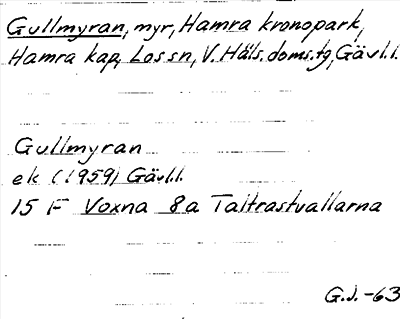 Gullmyran, myr, Hamra kronopark,
Hamra kap, Los sn, V. Häls. doms.tg, Gävl.l.
Gullmyran
ek (1959) Gävl.l.
15 F Voxna 8a Taltrastvallarna
G.J. -63